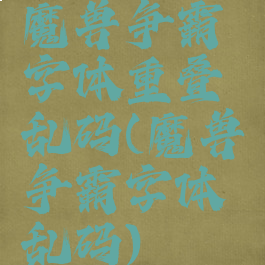 魔兽争霸
字体重叠
乱码(魔兽
争霸字体
乱码)